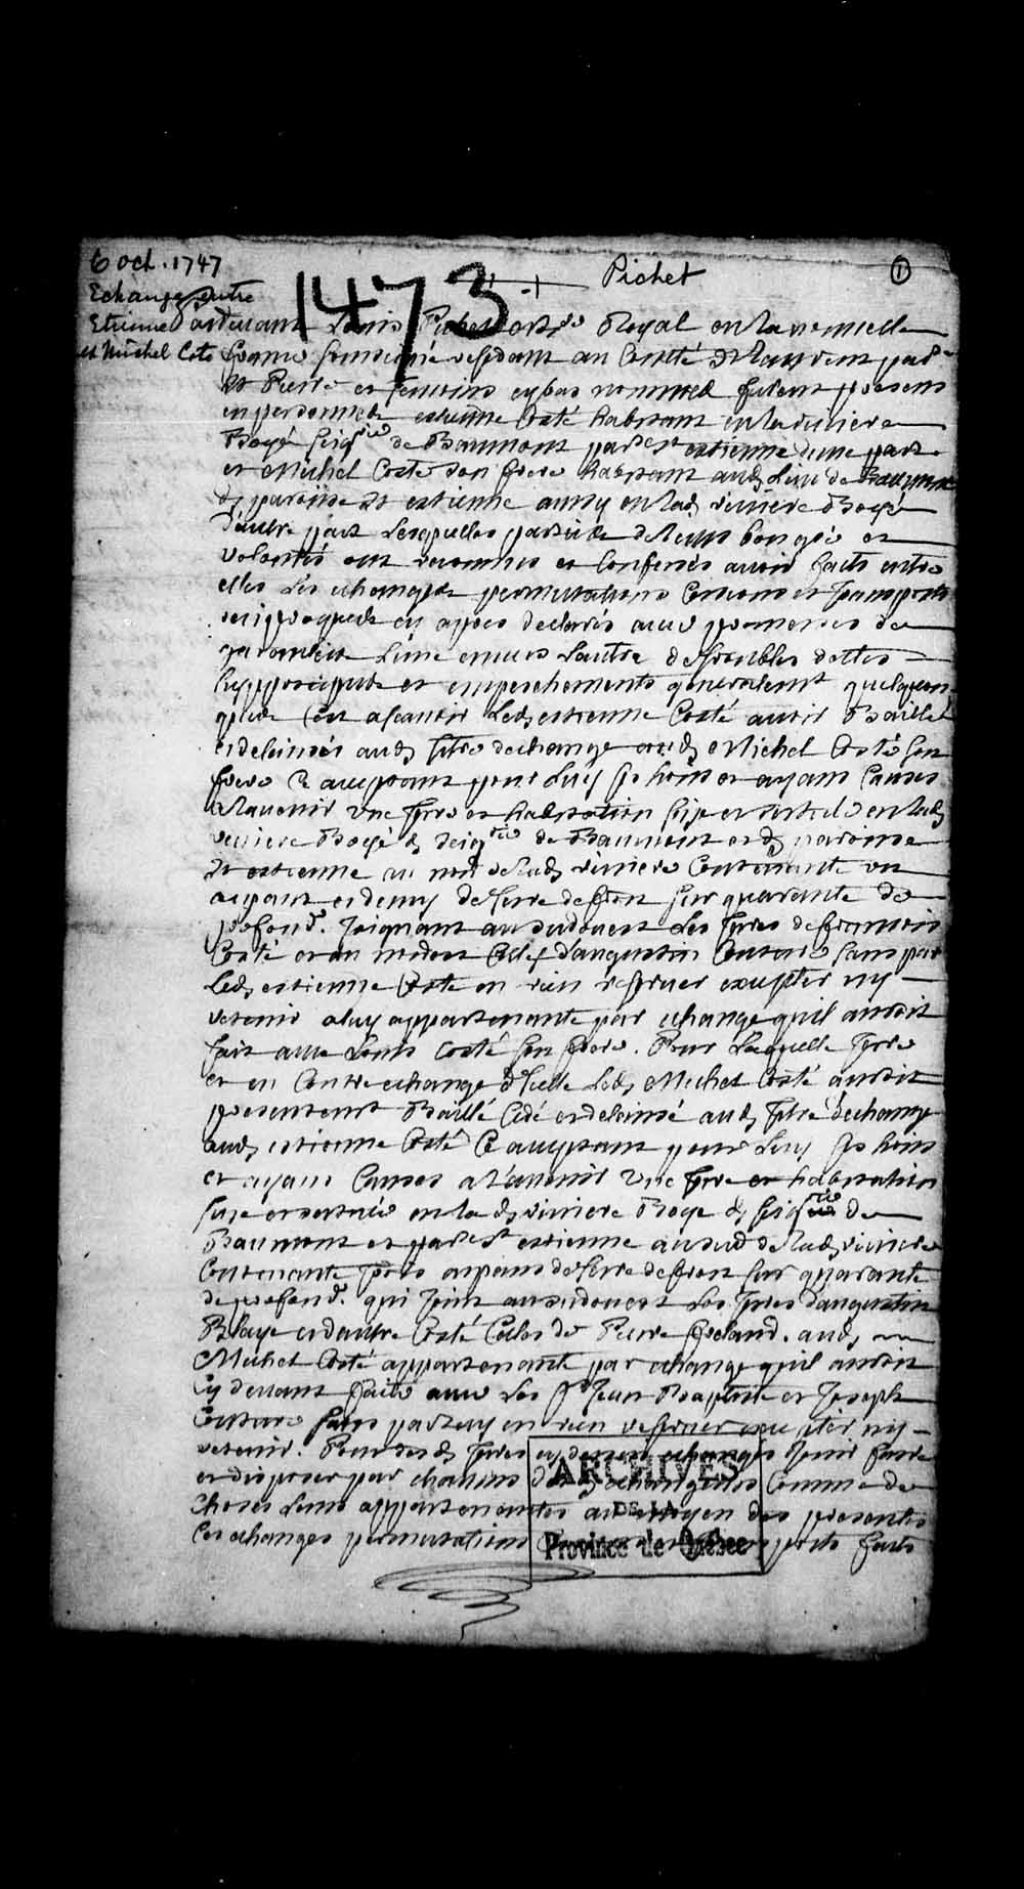 6 oct. 1747
Echange entre
Etienne
et Michel Coté
1473
Pichet
1
Pardevant Louis Pichet not.re Royal en la nouvelle
france soussigné residant au Comté St Laurent par.
St Pierre et temoins cy bas nommez furent presens
en personnes estienne Costé habitant en la riviere
Boyé seig.rie de Beaumont par.se St estienne d'une part
et Michel Costé son frere habitant aud. lieu de Beaumont
d. paroisse St estienne aussy en lad. riviere Boyé
d'autre part Lesquelles parties de leurs bon gré et
volontés ont reconnus et Confessés avoir faits entre
elles Les echanges permutations Cessions et transports
reciproques cy apres declarés avec promesses de
garentie L'une envers L'autre de troubles dettes
hypoteques et empeschements generalement quelquon
ques C'est ascavoir Led. estienne Costé avoir Baillé
et delaissé aud. titre dechange aud. Michel Costé son
frere Ce acceptant pour Luy ses hoirs et ayans Causes
a Lavenir Une terre et habitation size et scituée en lad.
riviere Boyé d. Seig.rie de Beaumont et d. paroisse
St estienne au nord de lad. riviere Contenante un
arpent et demy de terre de front sur quarante de
profond. Joignant au sudouest Les terres de francois
Costé et au nordest Celles d'augustin Couture sans par
Led. estienne Costé en rien reserver excepter ny
retenir a luy appartenante par echange quil auroit
fait avec Louis Costé son frere. Pour Laquelle terre
et en Contrechange d'Icelle Led. Michel Costé auroit
presentement Baillé Cédé et delaissé aud. titre déchange
aud. estienne Costé Ce acceptant pour Luy ses hoirs
et ayans Causes a L'avenir Une terre et habitation
size et scituée en la d. riviere Boye d. seig.rie de
Beaumont et par.se St estienne au sud de lad. riviere
Contenante trois arpens de terre de front sur quarante
de profond. qui Joint au sudouest Les terres d'augustin
Blaye et d'autre Costé Celles de Pierre
Michel Costé appartenante par echange quil auroit
cy devant faite avec Les Srs Jean Baptiste et Joseph
Couture sans par Luy en rien reserver excepter ny
retenir. Pour des d. terres cy dessus echangés Jouir faire
et disposer par chacuns d. echangistes Comme de
choses Leurs appartenantes au moyen des presentes
Ces echanges permutations faits
ARCHIVES
DE LA
Province de Québec